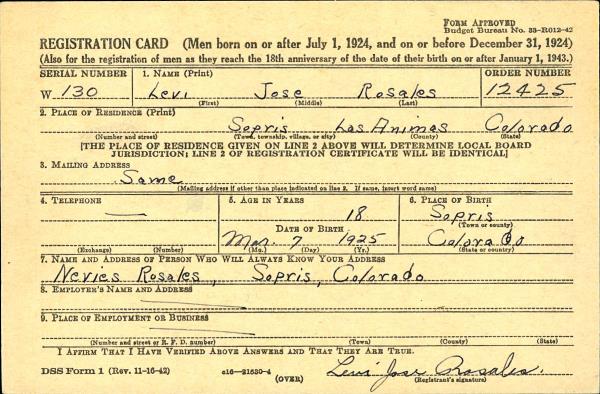 Form Approved
Budget Bureau No. 33-R012-42
REGISTRATION CARD (Men born on or after July 1, 1924, and on or before December 31, 1924)
(Also for the registration of men as they reach the 18th anniversary of the date of their birth on or after January 1, 1943.)
SERIAL NUMBER 1. NAME (Print) ORDER NUMBER
W 130 Levi Jose Rosales 12425
(First) (Middle) (Last)
2. PLACE OF RESIDENCE (Print)
Sopris Las Animas Colorado
(Number and street) (Town, township, village, or city) (County) (State)
[THE PLACE OF RESIDENCE GIVEN ON LINE 2 ABOVE WILL DETERMINE LOCAL BOARD
JURISDICTION; LINE 2 OF REGISTRATION CERTIFICATE WILL BE IDENTICAL]
3. MAILING ADDRESS
Same
(Mailing address if other than place indicated on line 2. If same, insert word same)
4. TELEPHONE 5. AGE IN YEARS 6. PLACE OF BIRTH
— 18 Sopris
(Town or county)
DATE OF BIRTH
Mar. 7 1925 Colorado
(Exchange) (Number) (Mo.) (Day) (Yr.) (State or country)
7. NAME AND ADDRESS OF PERSON WHO WILL ALWAYS KNOW YOUR ADDRESS
Nevies Rosales, Sopris, Colorado
8. EMPLOYER'S NAME AND ADDRESS
9. PLACE OF EMPLOYMENT OR BUSINESS
(Number and street or R. F. D. number) (Town) (County) (State)
I AFFIRM THAT I HAVE VERIFIED ABOVE ANSWERS AND THAT THEY ARE TRUE.
DSS Form 1 (Rev. 11-16-42) c16-21630-4 (OVER) Levi Jose Rosales
(Registrant's signature)